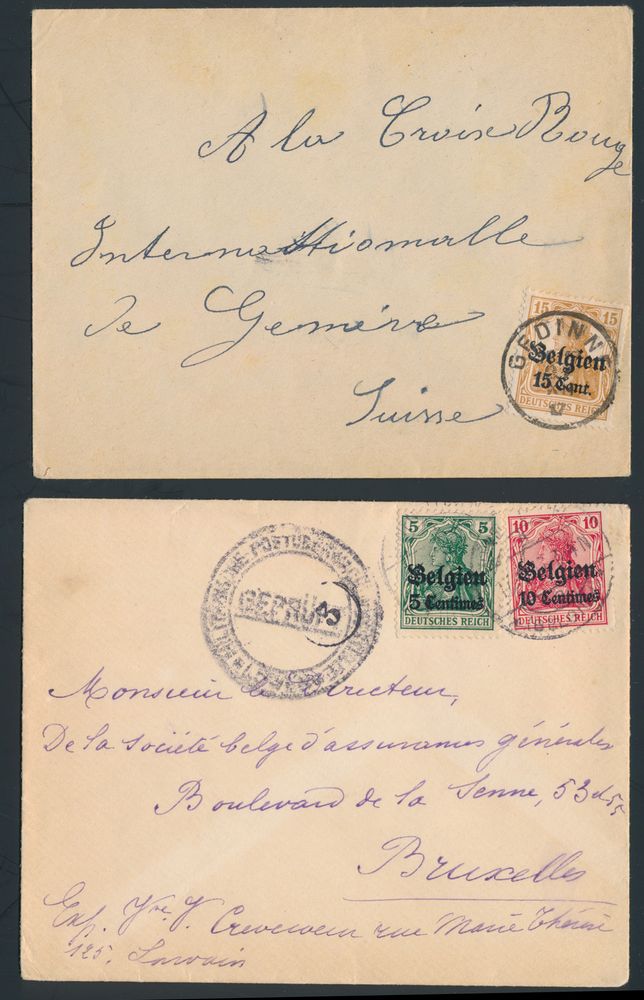 A la Croix Rouge
Internattionnalle
de Genéve
Suisse
15 15
GEDINNE
Belgien
15 Cent.
DEUTSCHES REICH
5 5
Belgien
5 Centimes
DEUTSCHES REICH
10 10
Belgien
10 Centimes
DEUTSCHES REICH
GEPRÜFT
Monsieur le Directeur,
De la Société belge d'assurances générales
Boulevard de la Senne, 53 et 55
Bruxelles
Exp. Vve V. rue Marie Thérèse
125. Louvain